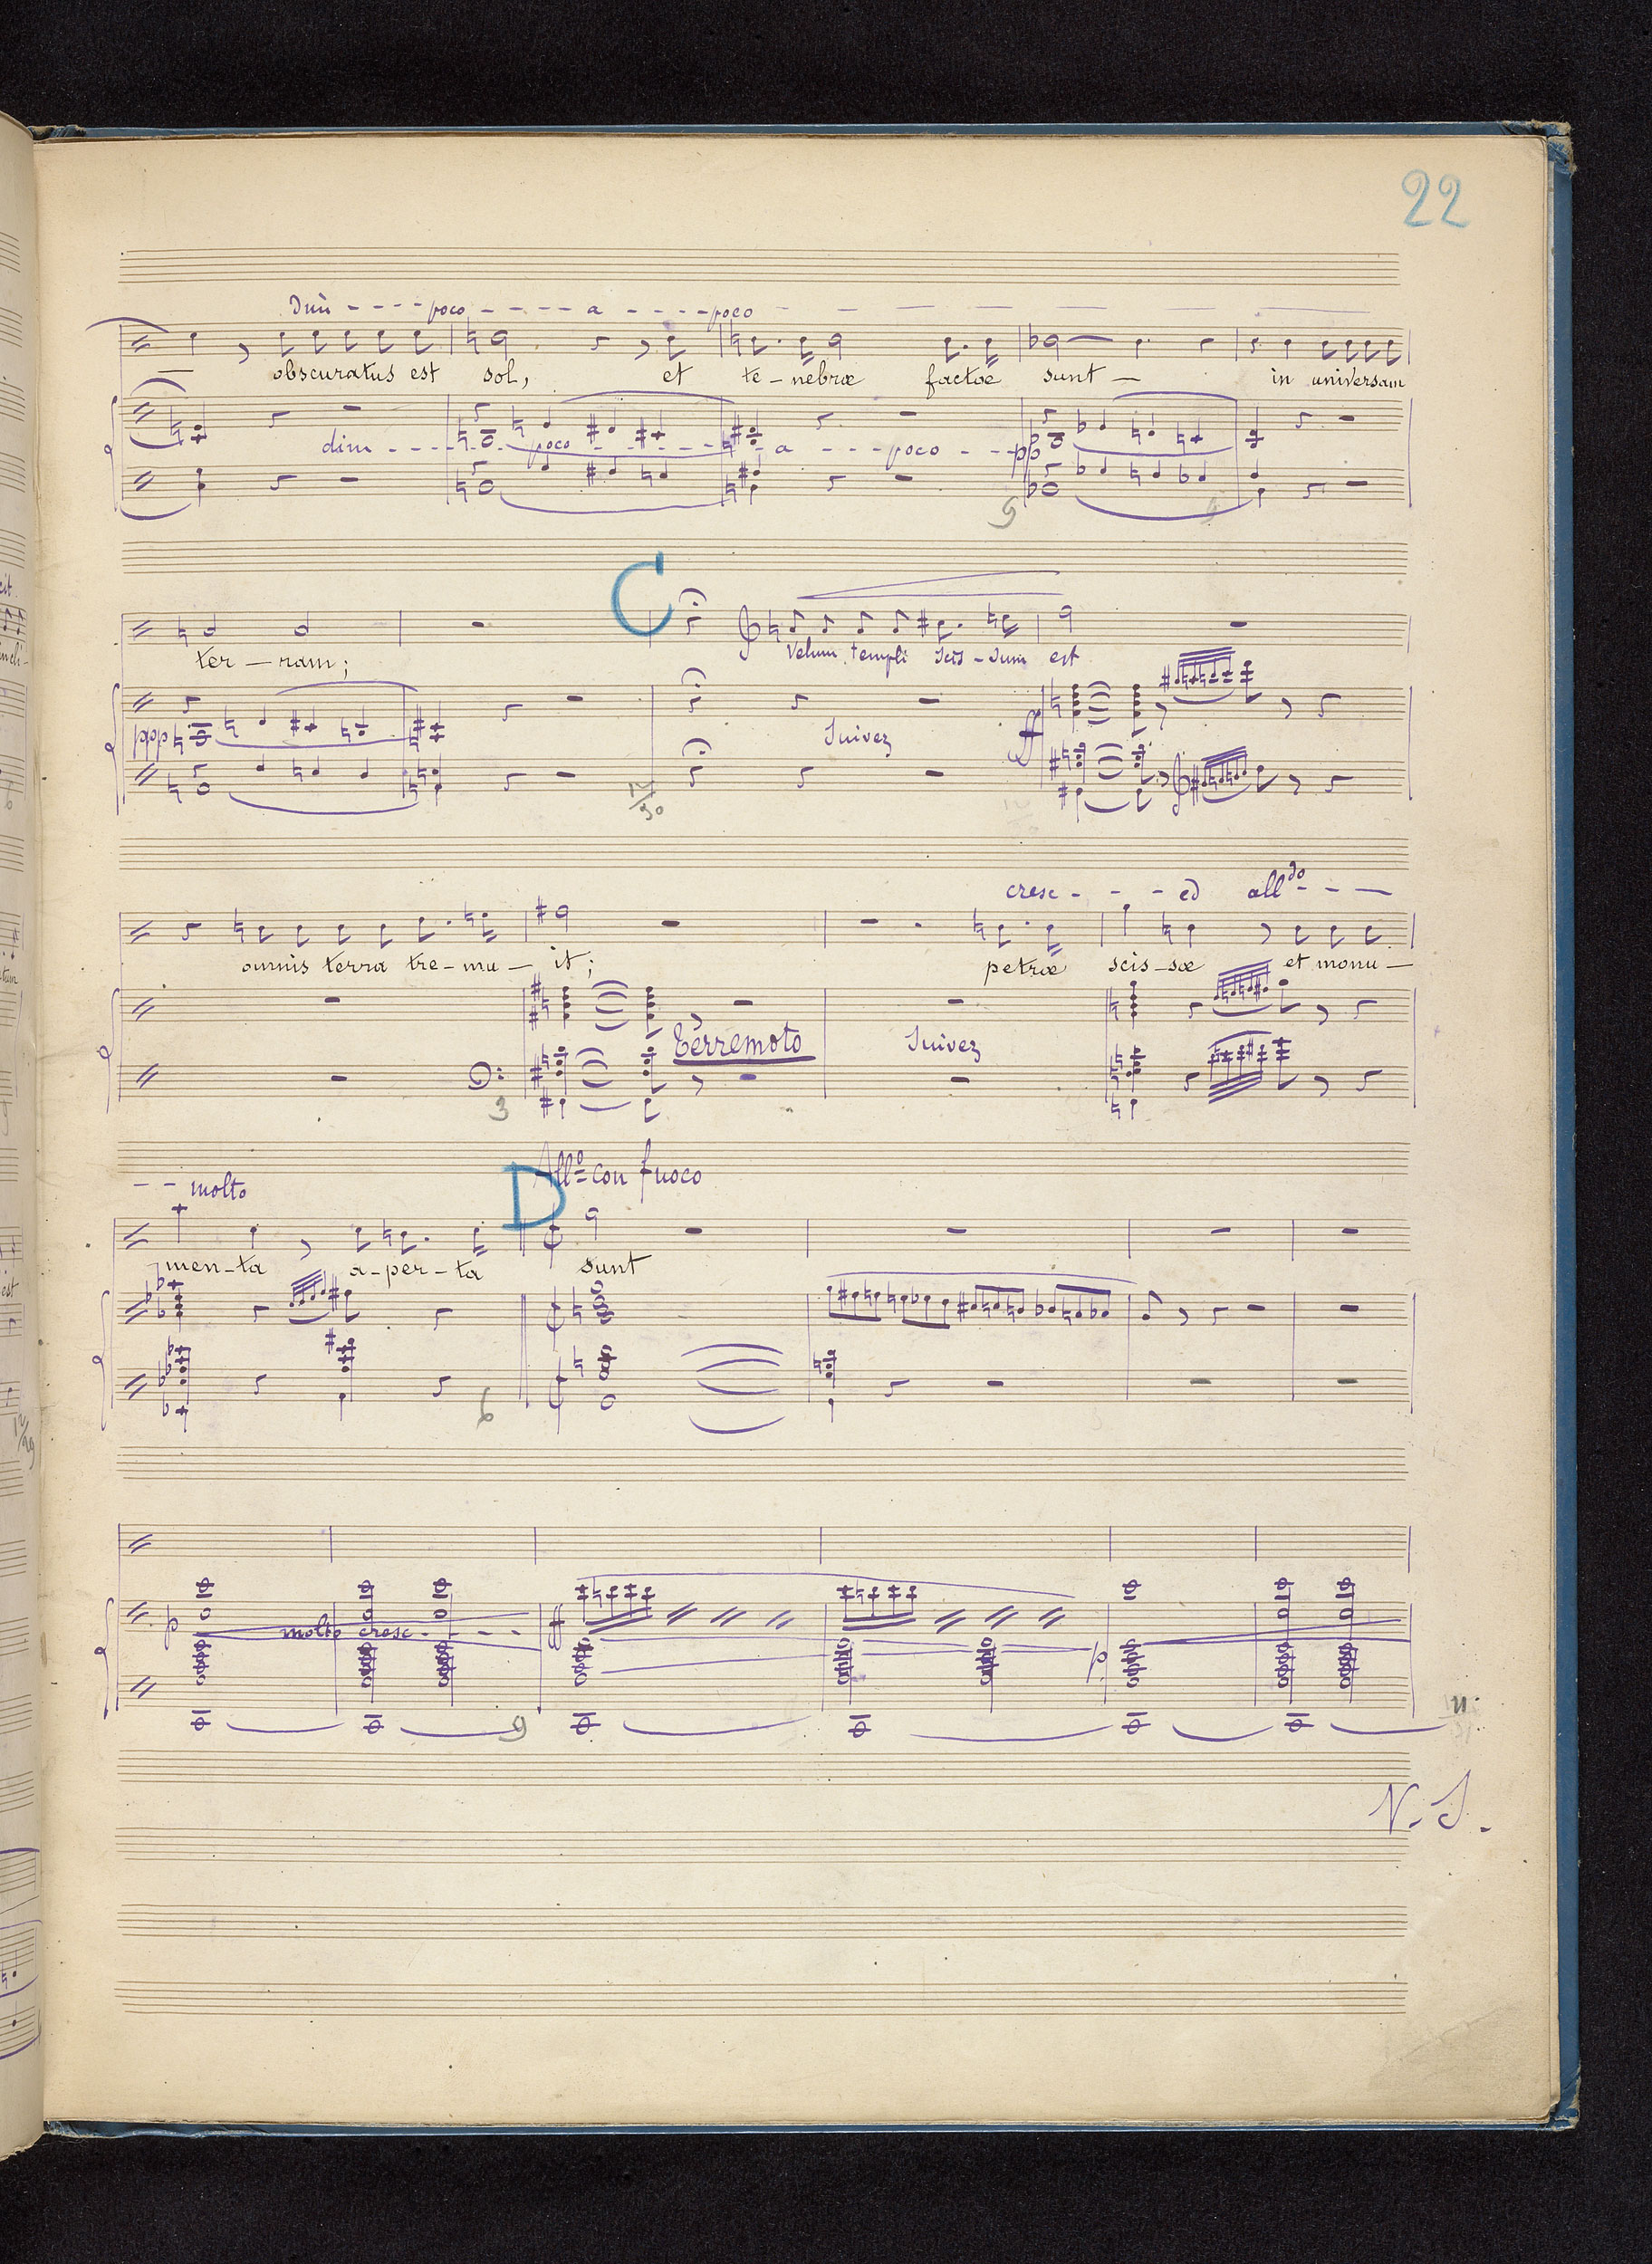 22
dim - - - - poco - - - - a - - - - poco - - - - -
obscuratus est sol, et te - nebræ factæ sunt — in universam
dim - - - - poco - - - - a - - - poco - - - pp
9
C
ter — ram; Velum templi scis - sum est
ppp Suivez ff
12/30
cresc - - - ed all.do - - -
omnis terra tre - mu - it; petræ scis - sæ et monu -
Terremoto Suivez
3
- - molto D All.o con fuoco
men - ta a - per - ta sunt
6
p molto cresc. - - - ff p
9 11
V. S.